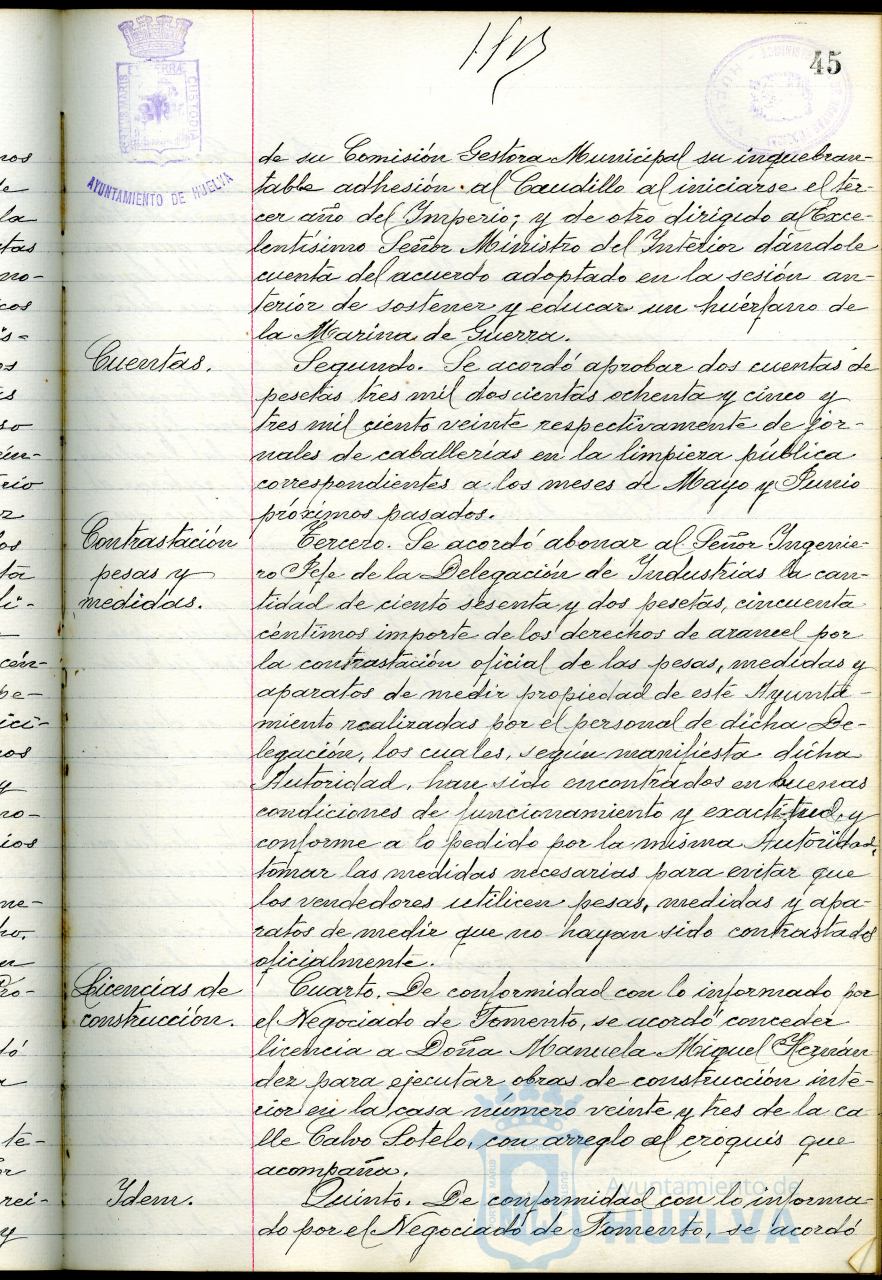 45
PORTUS MARIS ET TERRÆ CUSTODIA
AYUNTAMIENTO DE HUELVA
de su Comisión Gestora Municipal su inquebran-
table adhesión al Caudillo al iniciarse el ter-
cer año del Imperio; y de otro dirigido al Exce-
lentísimo Señor Ministro del Interior dándole
cuenta del acuerdo adoptado en la sesión an-
terior de sostener y educar un huérfano de
la Marina de Guerra.
Cuentas. Segundo. Se acordó aprobar dos cuentas de
pesetas tres mil doscientas ochenta y cinco y
tres mil ciento veinte respectivamente de jor-
nales de caballerías en la limpieza pública
correspondientes a los meses de Mayo y Junio
próximos pasados.
Contrastación Tercero. Se acordó abonar al Señor Ingenie-
pesas y ro Jefe de la Delegación de Industrias la can-
medidas. tidad de ciento sesenta y dos pesetas, cincuenta
céntimos importe de los derechos de arancel por
la contrastación oficial de las pesas, medidas y
aparatos de medir propiedad de este Ayunta-
miento realizadas por el personal de dicha De-
legación, los cuales, según manifiesta dicha
Autoridad, han sido encontrados en buenas
condiciones de funcionamiento y exactitud, y
conforme a lo pedido por la misma Autoridad,
tomar las medidas necesarias para evitar que
los vendedores utilicen pesas, medidas y apa-
ratos de medir que no hayan sido contrastados
oficialmente.
Licencias de Cuarto. De conformidad con lo informado por
construcción. el Negociado de Fomento, se acordó conceder
licencia a Doña Manuela Miguel Hernán-
dez para ejecutar obras de construcción inte-
rior en la casa número veinte y tres de la ca-
lle Calvo Sotelo, con arreglo al croquis que
acompaña.
Idem. Quinto. De conformidad con lo informa-
do por el Negociado de Fomento, se acordó
Ayuntamiento de
HUELVA